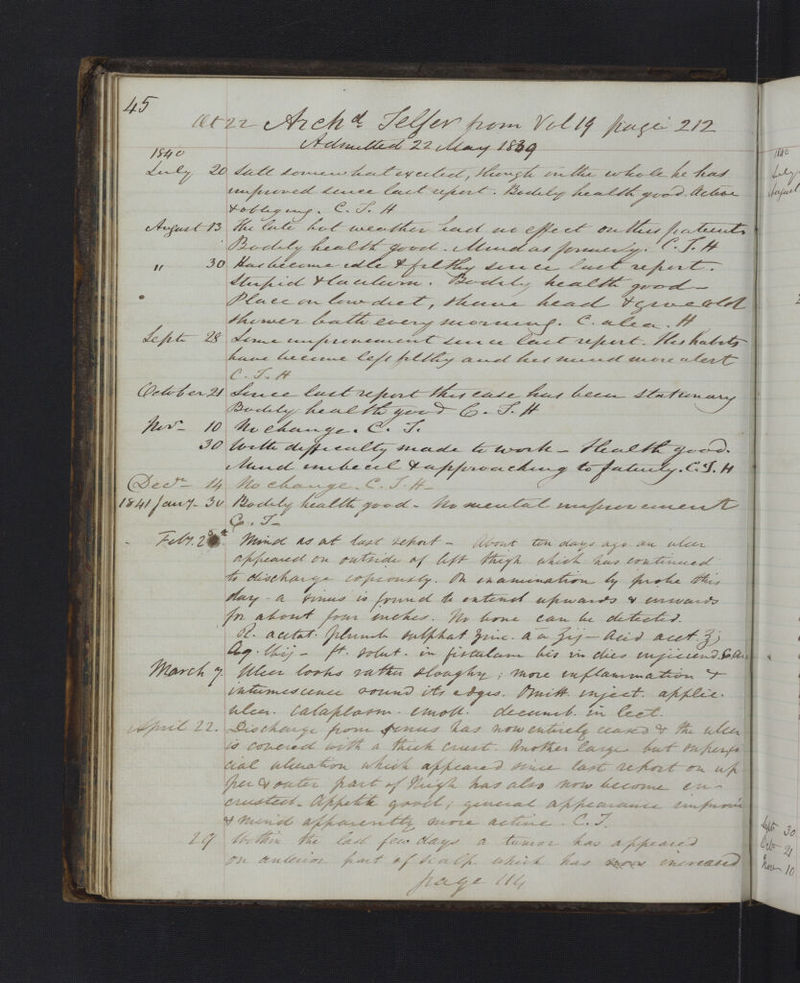 45
Aet 22 Archd. Telfer from Vol 19 page 212
Admitted 22 May 1839
1840
July 20 Still somewhat excited, though on the whole he has
improved since last report. Bodily health good. Active
& obliging. C. T. H
August 13 The late hot weather had no effect on this patient.
Bodily health good. Mind as formerly. C. T. H
" 30 Has become idle & filthy since last report.
Stupid & taciturn. Bodily health good -
Place on low diet, shave head & give cold
shower bath every morning. C. H
Septr 28 Some improvement since last report. His habits
have become less filthy and his mind more alert
C. T. H
October 21 Since last report this case has been stationary
Bodily health good C. T. H
Novr 10 No change. C. T.
30 With difficulty made to work - Health good.
Mind imbecil & approaching to fatuity. C. T. H
Decr 14 No change. C. T. H -
1841 Jany 30 Bodily health good - No mental improvement
C. T -
Feby. 28 Mind as at last report - About ten days ago an ulcer
appeared on outside of left thigh which has continued
to discharge copiously. On examination by probe this
day - a sinus is found to extend upwards & inwards
for about four inches. No bone can be detected.
R. acetat. plumb sulphat zinc. a a ʒij - Acid acet ʒj
Aq. ft. solut. in fistulam bis in dies injiciend.
March 7. Ulcer looks rather sloughy; more inflammation &
intumescence round its edges. Omitt. inject. applic.
ulcer. cataplasm. emoll. decumb. in lect.
April 22. Discharge from sinus has now entirely ceased & the ulcer
is covered with a thick crust. Another large but superfi
cial ulceration which appeared since last report on up
per & outer part of thigh has also now become en-
crusted. Appetite good; general appearance improving
& mind apparently more active. C. T.
29 Within the last few days a tumor has appeared
on anterior part of scalp which has increased
page 114
1840
July
August
Septr 30
Octr 21
Novr 10